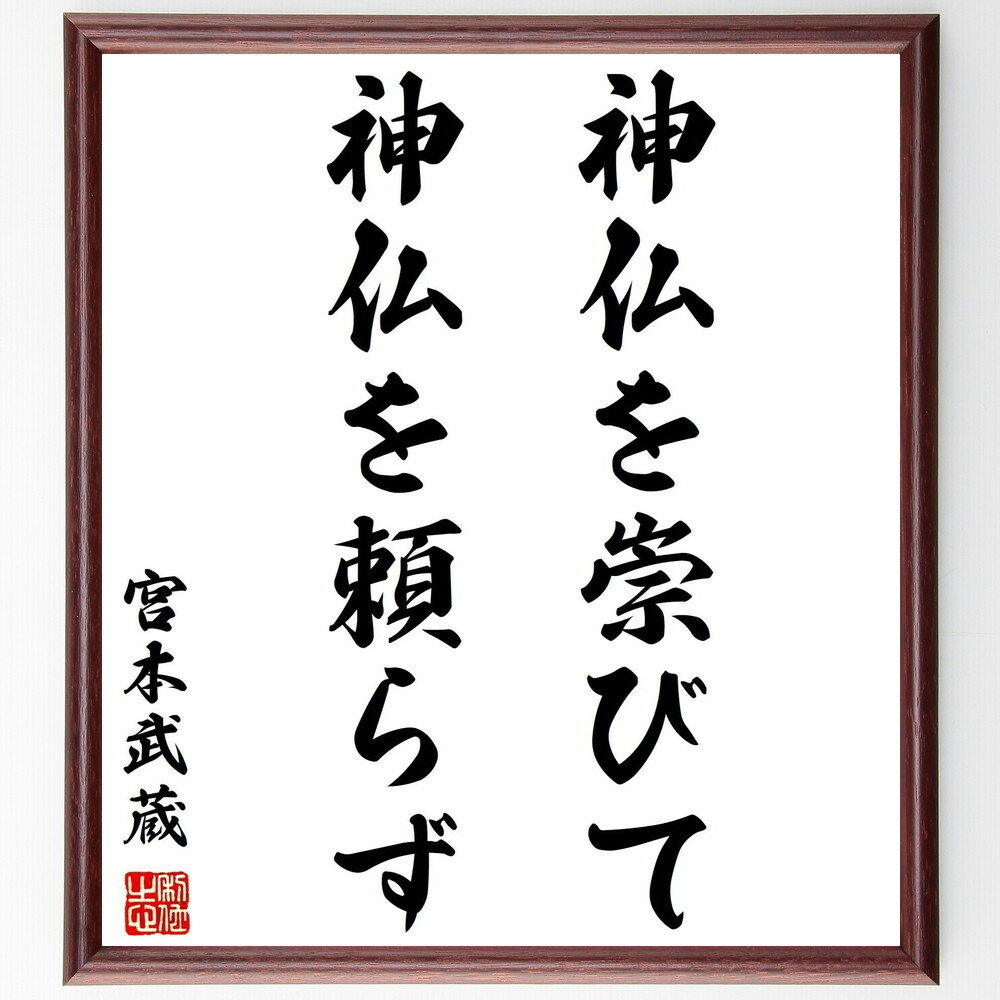 神仏を崇びて
神仏を頼らず
宮本武蔵